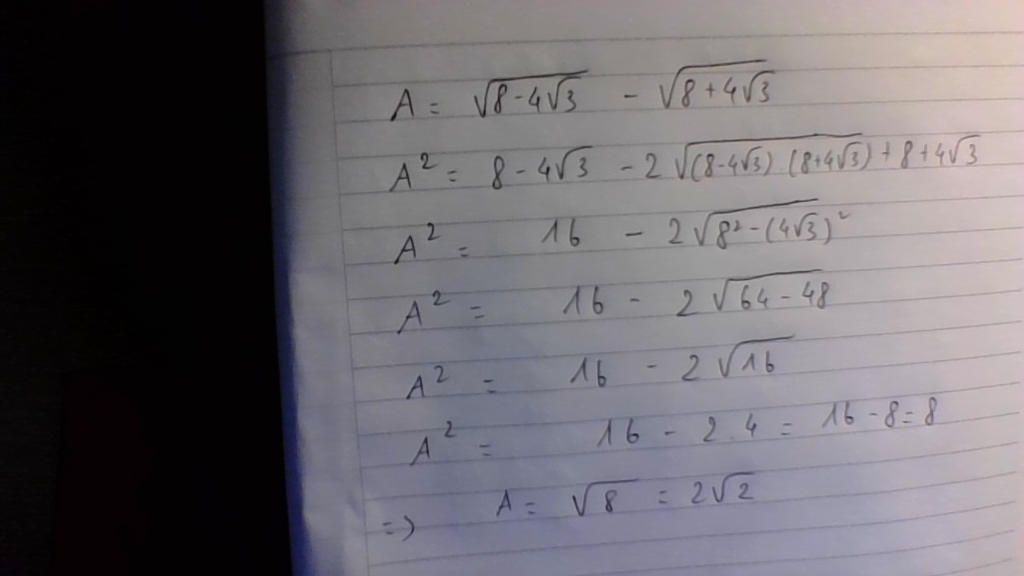 A = √(8-4√3) - √(8+4√3)
A² = 8-4√3 - 2√((8-4√3)(8+4√3)) + 8+4√3
A² = 16 - 2√(8²-(4√3)²)
A² = 16 - 2√(64-48)
A² = 16 - 2√16
A² = 16 - 2.4 = 16-8=8
=> A = √8 = 2√2